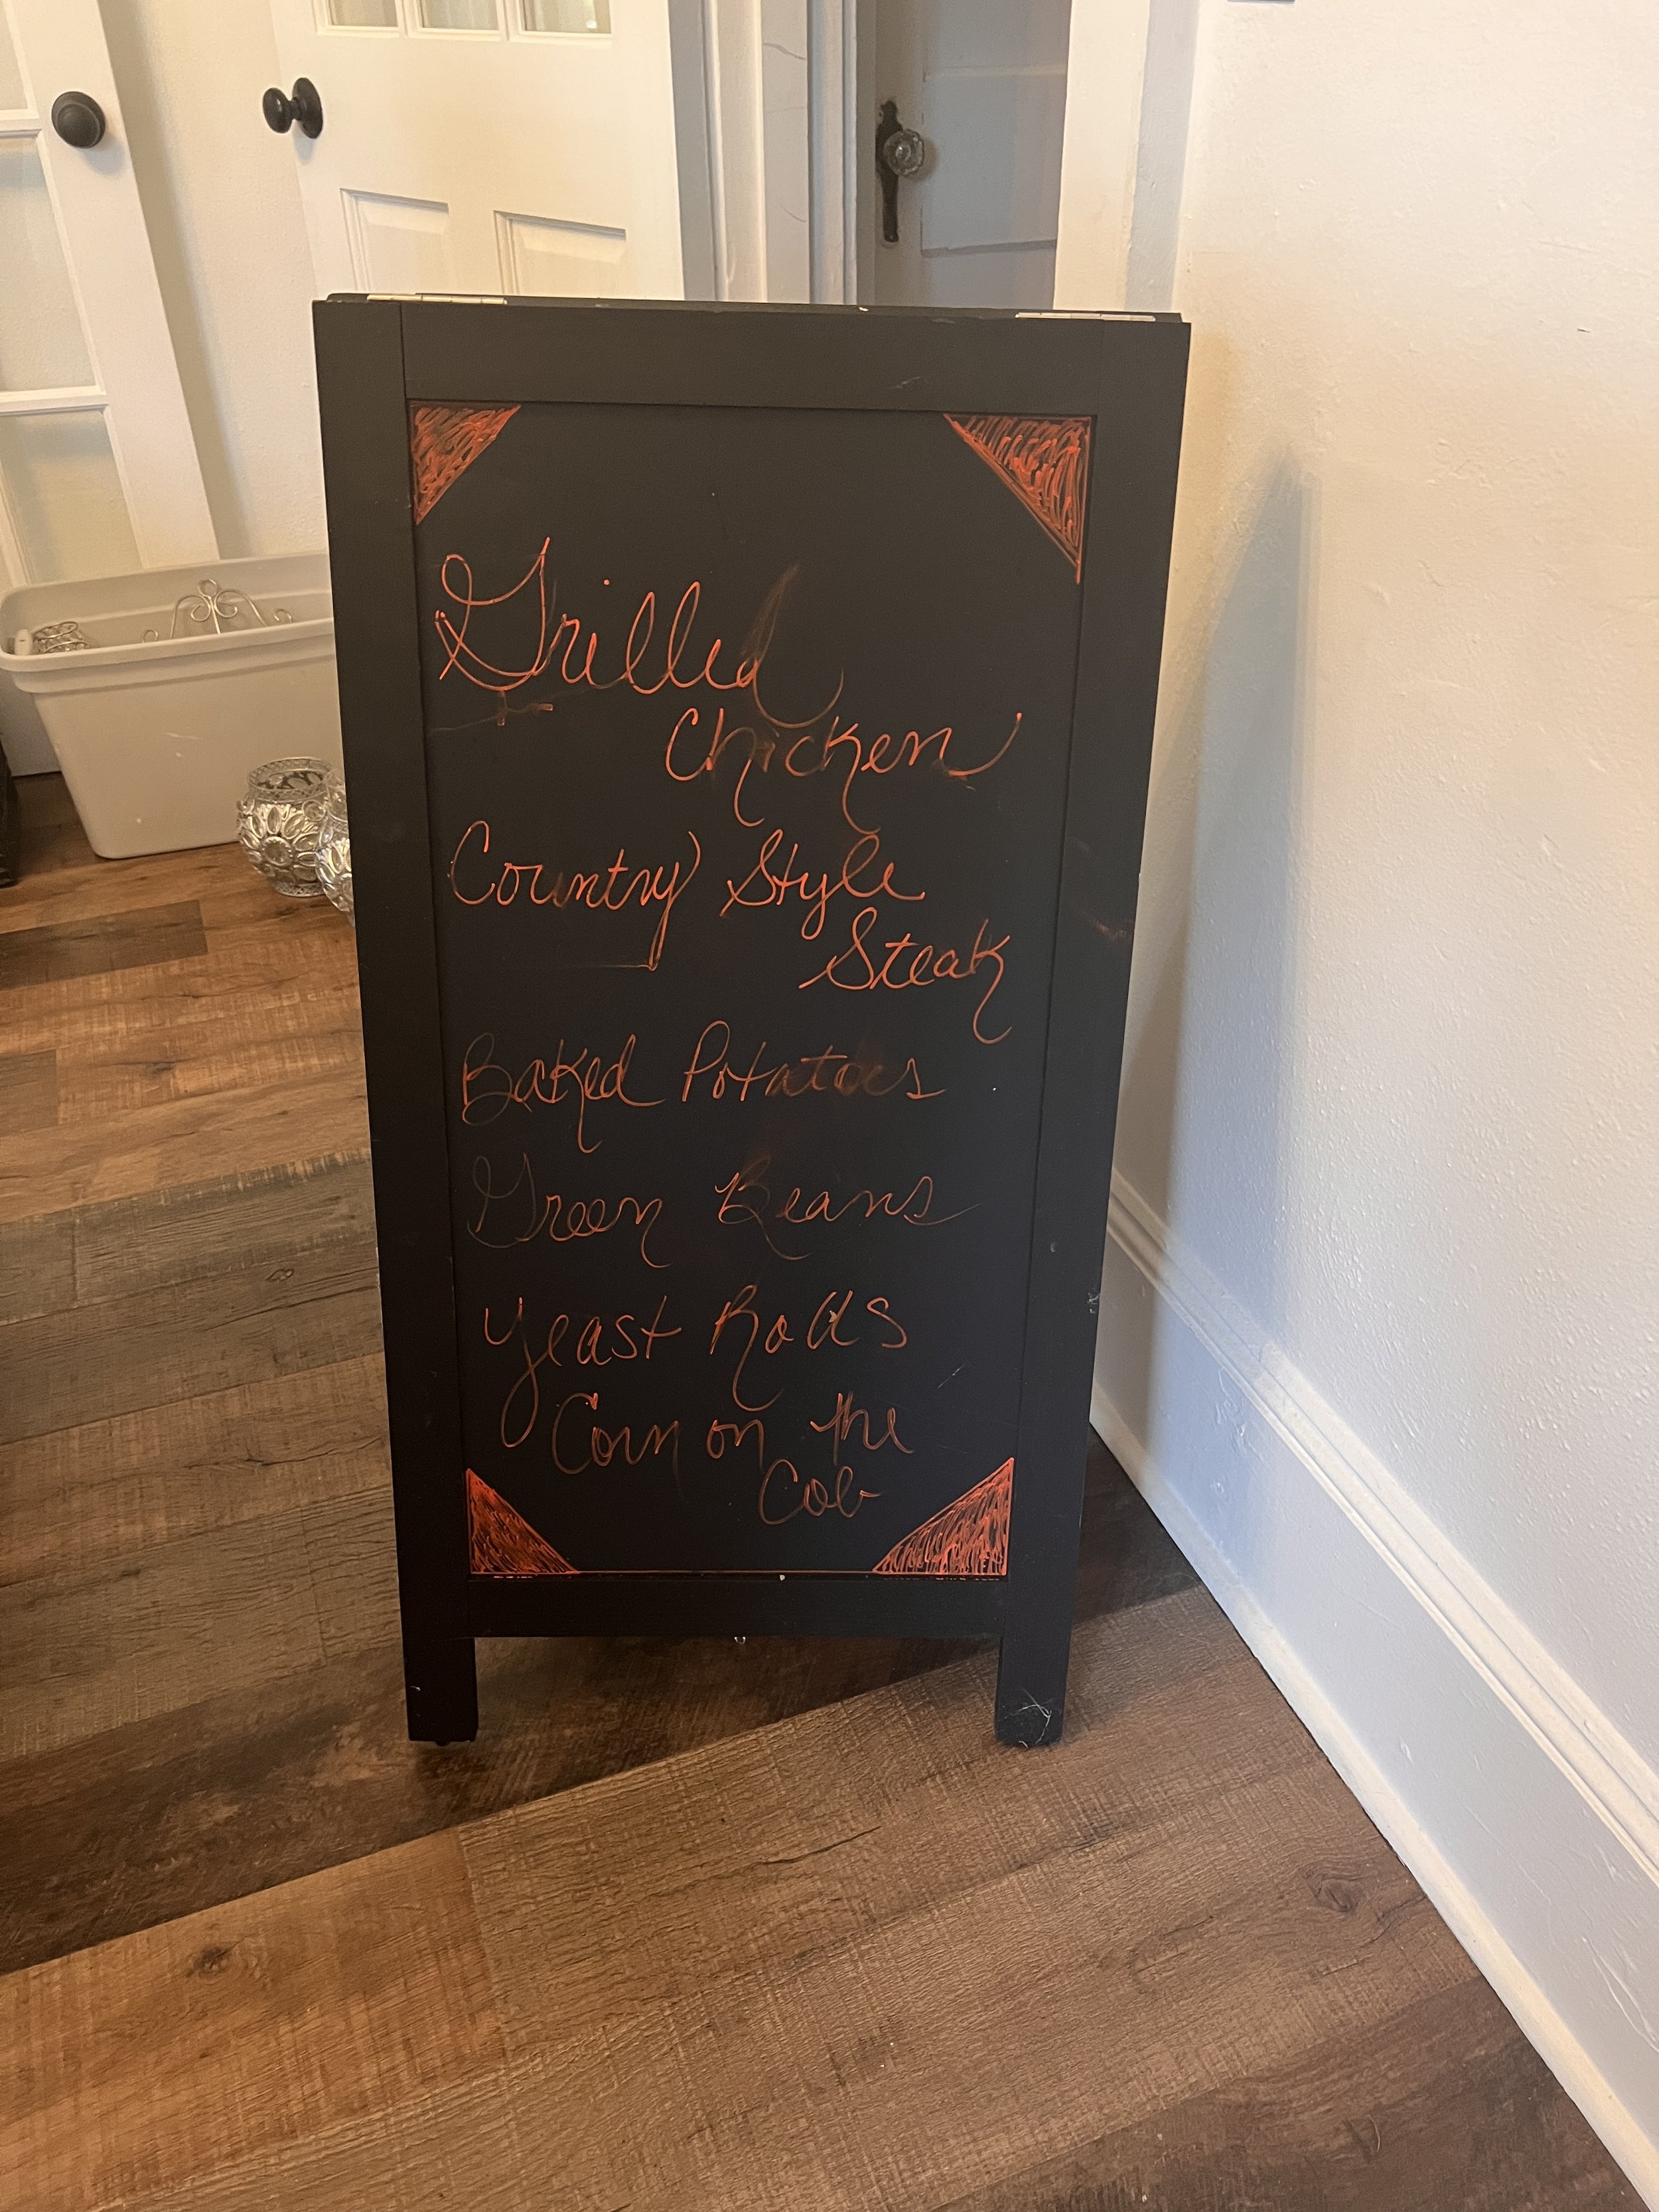 Grilled
Chicken
Country Style
Steak
Baked Potatoes
Green Beans
Yeast Rolls
Corn on the
Cob